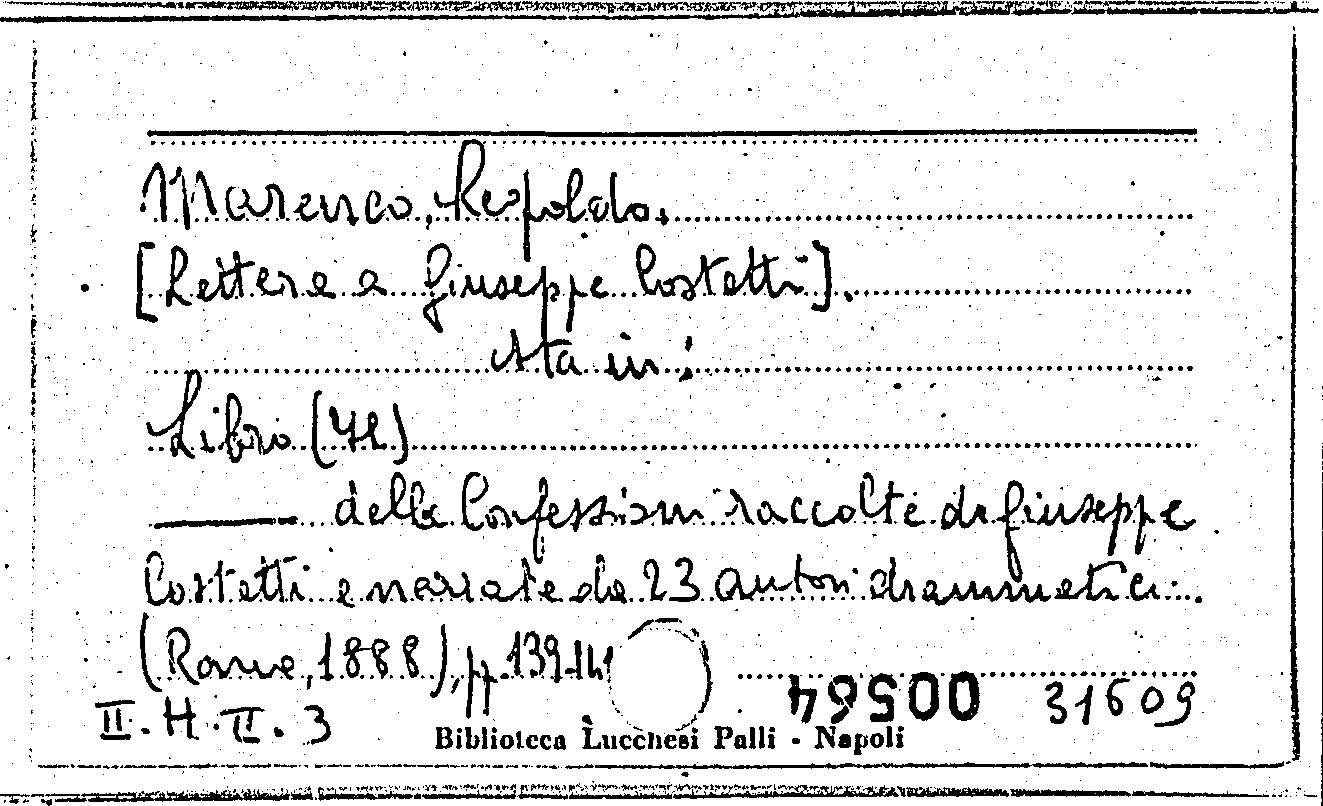 Marenco, Leopoldo.
[Lettere a Giuseppe Costetti].
sta in:
Libro (Il)
——— delle Confessioni raccolte da Giuseppe
Costetti e narrate da 23 autori drammatici.
(Roma, 1888), pp. 139-141
00564 31609
II. H. II. 3
Biblioteca Lucchesi Palli - Napoli